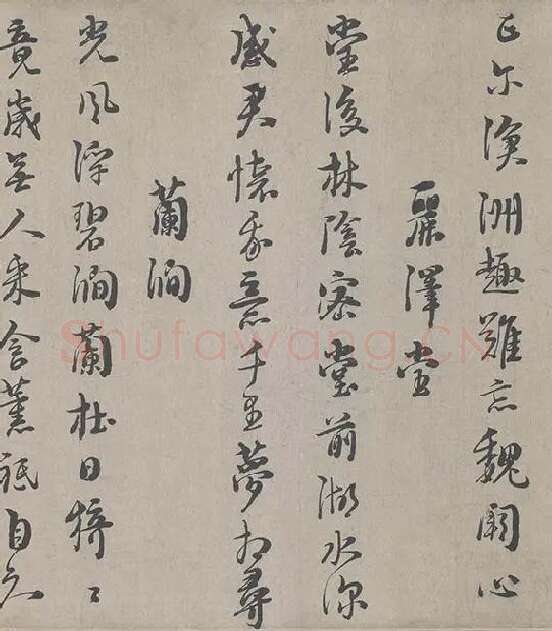 正尔滄洲趣難忘魏闕心
麗澤堂
堂後林陰密堂前湖水深
感君懷我意千里夢相尋
蘭澗
光風浮碧澗蘭杜日猗々
竟歲無人采含薰祇自知
Shufawang.CN